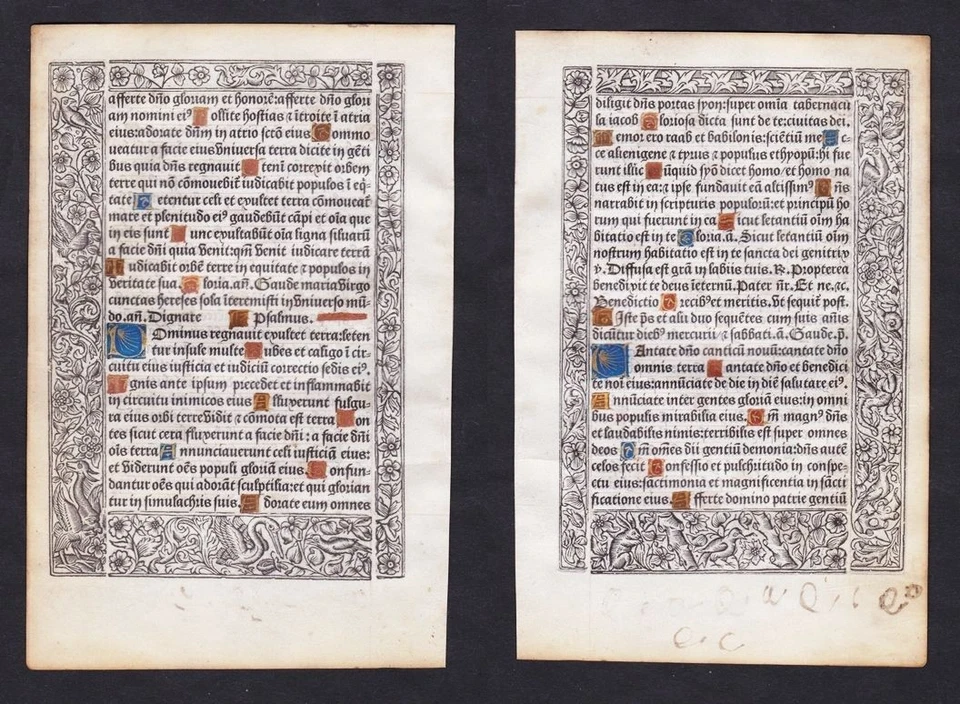 afferte dño gloriam et honorē:afferte dño glori
am nomini eiꝰ Tollite hostias ⁊ ītroite ī atria
eius:adorate dñm in atrio sctõ eius Commo
ueatur a facie eius vniversa terra dicite in gēti
bus quia dñs regnauit Eteni correxit orbem
terre qui nõ cõmouebit̄ iudicabit populos ī eq̄-
tate Letentur celi et exultet terra cõmoueat̄
mare et plenitudo eiꝰ gaudebūt cāpi et oīa que
in eis sunt Tunc exultabūt oīa ligna siluarū
a facie dñi quia venit:qm̄ venit iudicare terrā
Iudicabit orbē terre in equitate ⁊ populos in
veritate sua. Gloria.añ. Gaude maria virgo
cunctas hereses sola īteremisti in vniverso mū-
do.añ. Dignare Psalmus.
Dominus regnauit exultet terra:leten
tur insule multe Nubes et caligo ī cir-
cuitu eius iusticia et iudiciū correctio sedis eiꝰ.
Ignis ante ipsum precedet et inflammabit
in circuitu inimicos eius Alluxerunt fulgu-
ra eius orbi terre vidit ⁊ cõmota est terra Mon
tes sicut cera fluxerunt a facie dñi: a facie dñi
oīs terra Annunciauerunt celi iusticiā eius:
et viderunt oēs populi gloriā eius. Confun-
dantur oēs qui adorāt sculptilia:et qui glorian
tur in simulachris suis. Adorate eum omnes
diligit dñs portas syon:super omīa tabernacu
la iacob Gloriosa dicta sunt de te:ciuitas dei.
Memor ero raab et babilonis:sciētiū me Ec-
ce alienigene ⁊ tyrus ⁊ populus ethyopū:hi fue
runt illic Nūquid syõ dicet homo/et homo na
tus est in ea:⁊ ipse fundauit eā altissimꝰ Dñs
narrabit in scripturis populorū:et principū ho
rum qui fuerunt in ea Sicut letantiū oīm ha
bitatio est in te Gloria.ā. Sicut letantiū oīm
nostrum habitatio est in te sancta dei genitrix
v. Diffusa est grā in labiis tuis. R. Propterea
benedixit te deus īeternū. Pater nr̄. Et ne.⁊c.
Benedictio Precibꝰ et meritis. Vt sequit̄ post.
Iste p̄s et alii duo sequētes cum suis añis
dicūtur diebꝰ mercurii ⁊ sabbati.ā. Gaude.p̄.
Cantate dño canticū nouū:cantate dño
omnis terra Cantate dño et benedici
te noī eius:annūciate de die in diē salutare eiꝰ.
Annūciate inter gentes gloriā eius:in omni
bus populis mirabilia eius. Qm̄ magnꝰ dñs
et laudabilis nimis:terribilis est super omnes
deos Qm̄ omēs dii gentiū demonia:dñs autē
celos fecit Confessio et pulchritudo in conspe-
ctu eius:sactimonia et magnificentia in sācti
ficatione eius. Afferte domino patrie gentiū